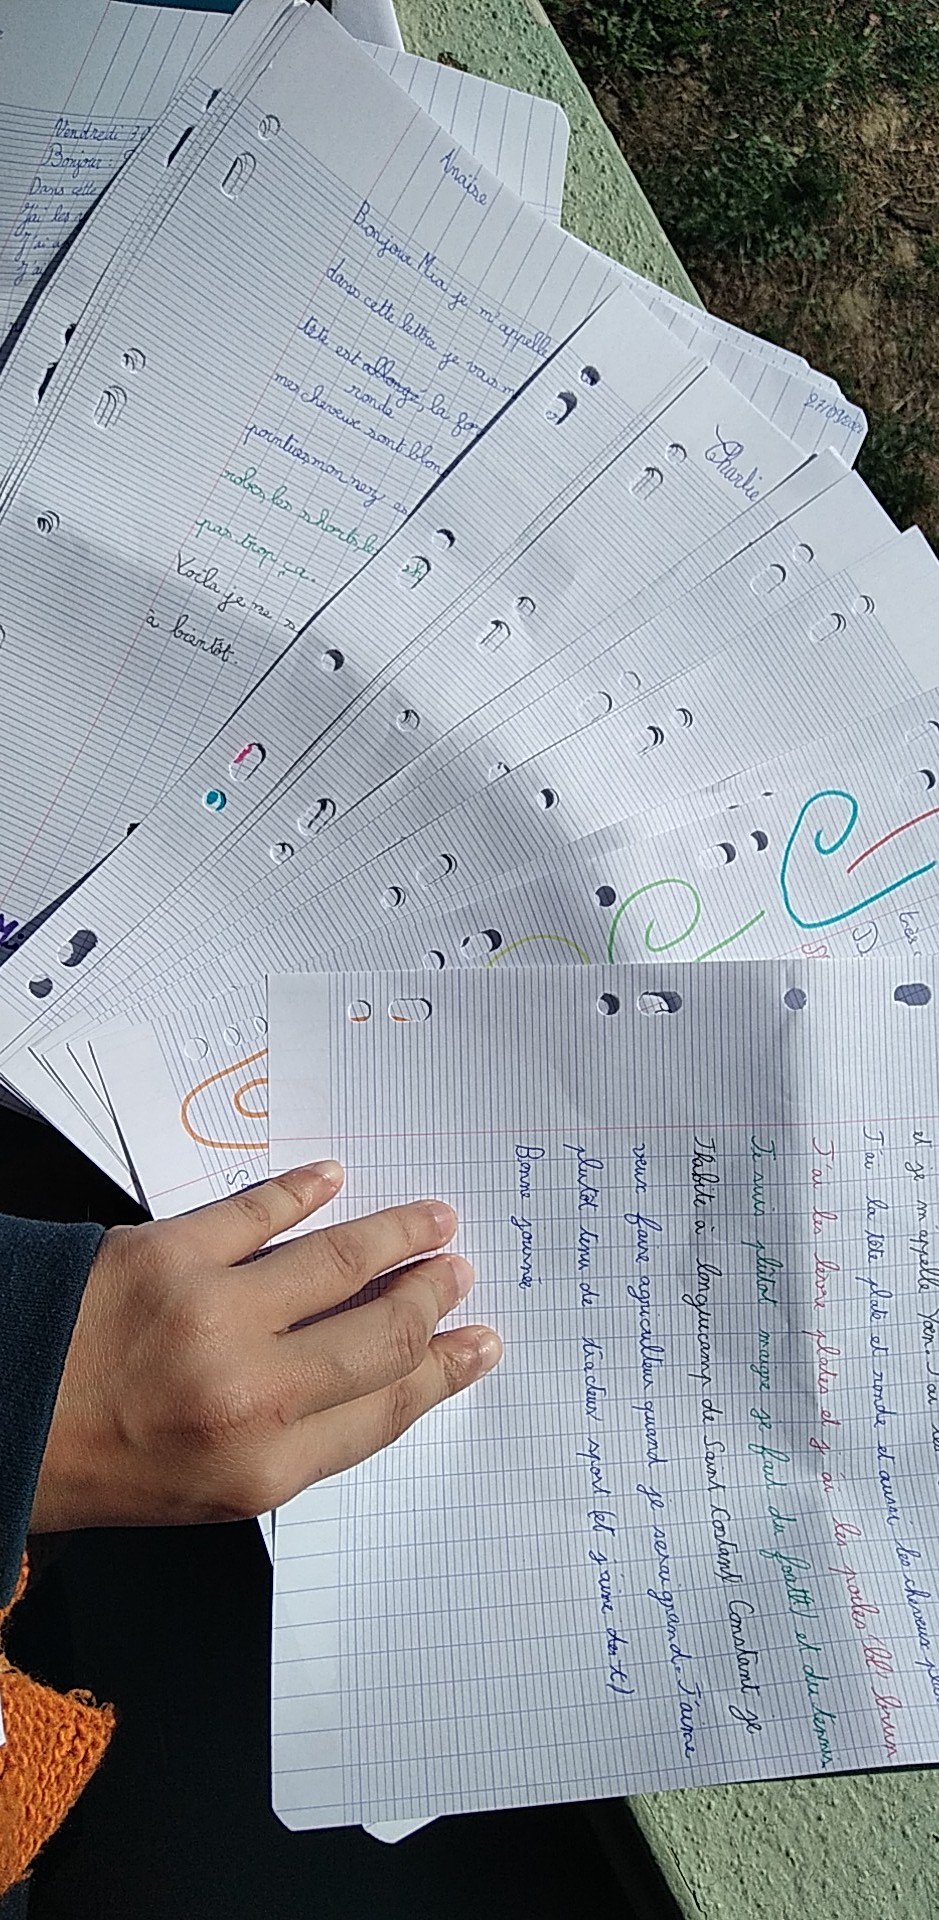 Vendredi
Bonjour
Dans cette
J'ai les
J'ai
J'ai
Anaïse
Bonjour Mia je m'appelle
dans cette lettre je vais m
tête est allongé, la
ronde
mes cheveux sont blon
pointies mon nez es
robes, les shorts, le
pas trop ça.
Voila je ne
à bientôt.
Charlie
très
et je m'appelle Yoen. J'ai les
J'ai la tête plate et ronde et aussi les cheveux
J'ai les levre plates et j'ai les poiles brun
Je suis plutot maigre je fait du footh et du tennis
J'habite à longuecamp de Saint Costant Constant je
veux faire agriculteur quand je serai grand. J'aime
plutôt tenu de tracteur sport et j'aime des
Bonne journée